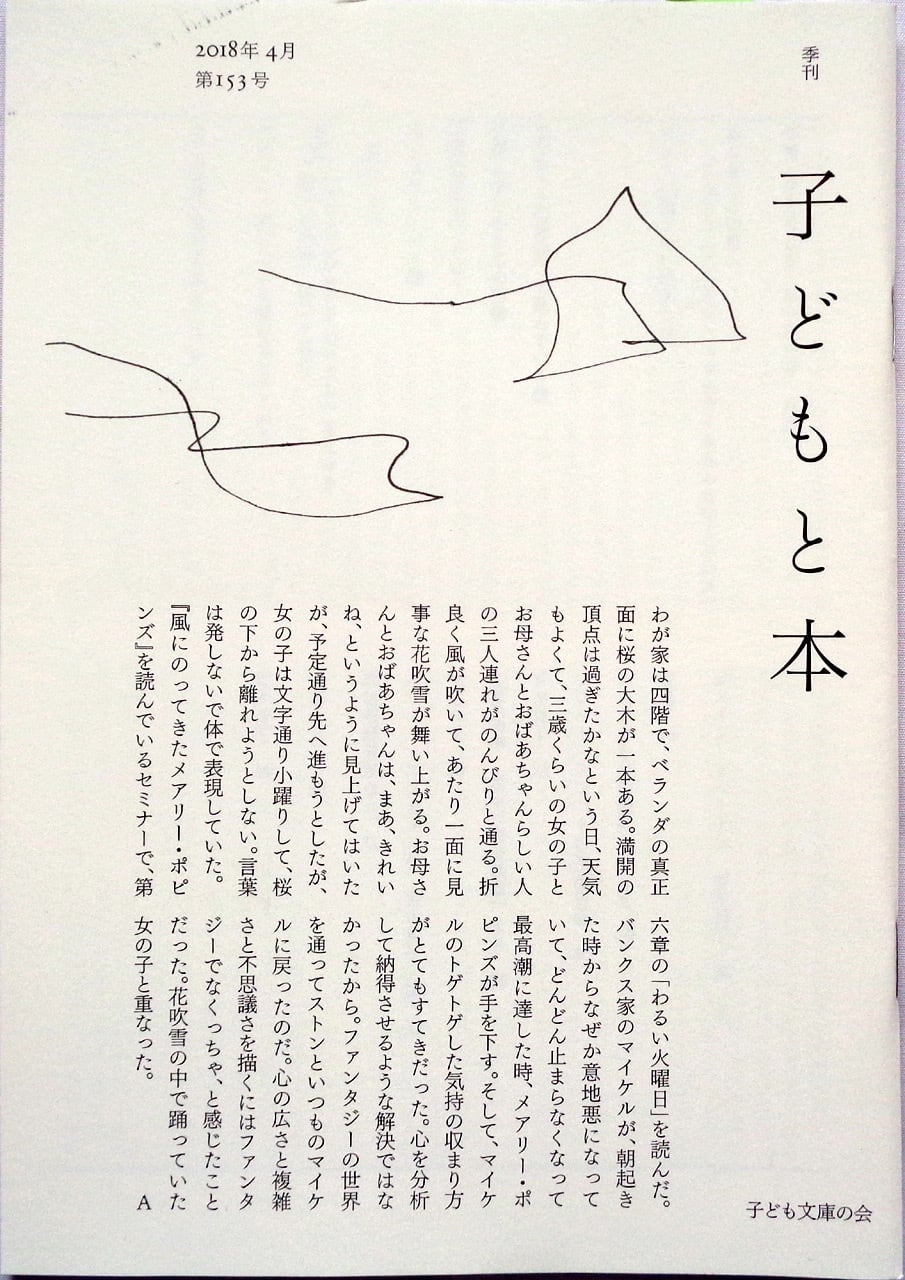 2018年 4月
第153号
季刊
子どもと本
わが家は四階で、ベランダの真正
面に桜の大木が一本ある。満開の
頂点は過ぎたかなという日、天気
もよくて、三歳くらいの女の子と
お母さんとおばあちゃんらしい人
の三人連れがのんびりと通る。折
良く風が吹いて、あたり一面に見
事な花吹雪が舞い上がる。お母さ
んとおばあちゃんは、まあ、きれい
ね、というように見上げてはいた
が、予定通り先へ進もうとしたが、
女の子は文字通り小躍りして、桜
の下から離れようとしない。言葉
は発しないで体で表現していた。
『風にのってきたメアリー・ポピ
ンズ』を読んでいるセミナーで、第
六章の「わるい火曜日」を読んだ。
バンクス家のマイケルが、朝起き
た時からなぜか意地悪になって
いて、どんどん止まらなくなって
最高潮に達した時、メアリー・ポ
ピンズが手を下す。そして、マイケ
ルのトゲトゲした気持の収まり方
がとてもすてきだった。心を分析
して納得させるような解決ではな
かったから。ファンタジーの世界
を通ってストンといつものマイケ
ルに戻ったのだ。心の広さと複雑
さと不思議さを描くにはファンタ
ジーでなくっちゃ、と感じたこと
だった。花吹雪の中で踊っていた
女の子と重なった。
A
子ども文庫の会